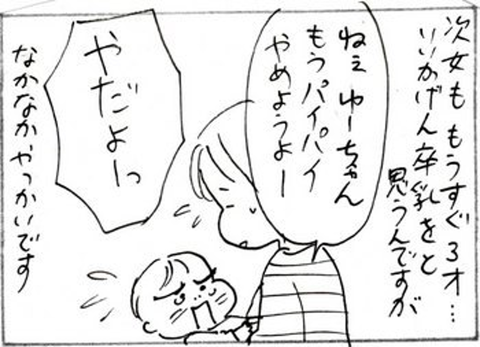 次女も もうすぐ3才…
いいかげん卒乳をと
思うんですが
ねぇ ゆーちゃん
もうパイパイ
やめようよー
やだよっ
なかなかやっかいです